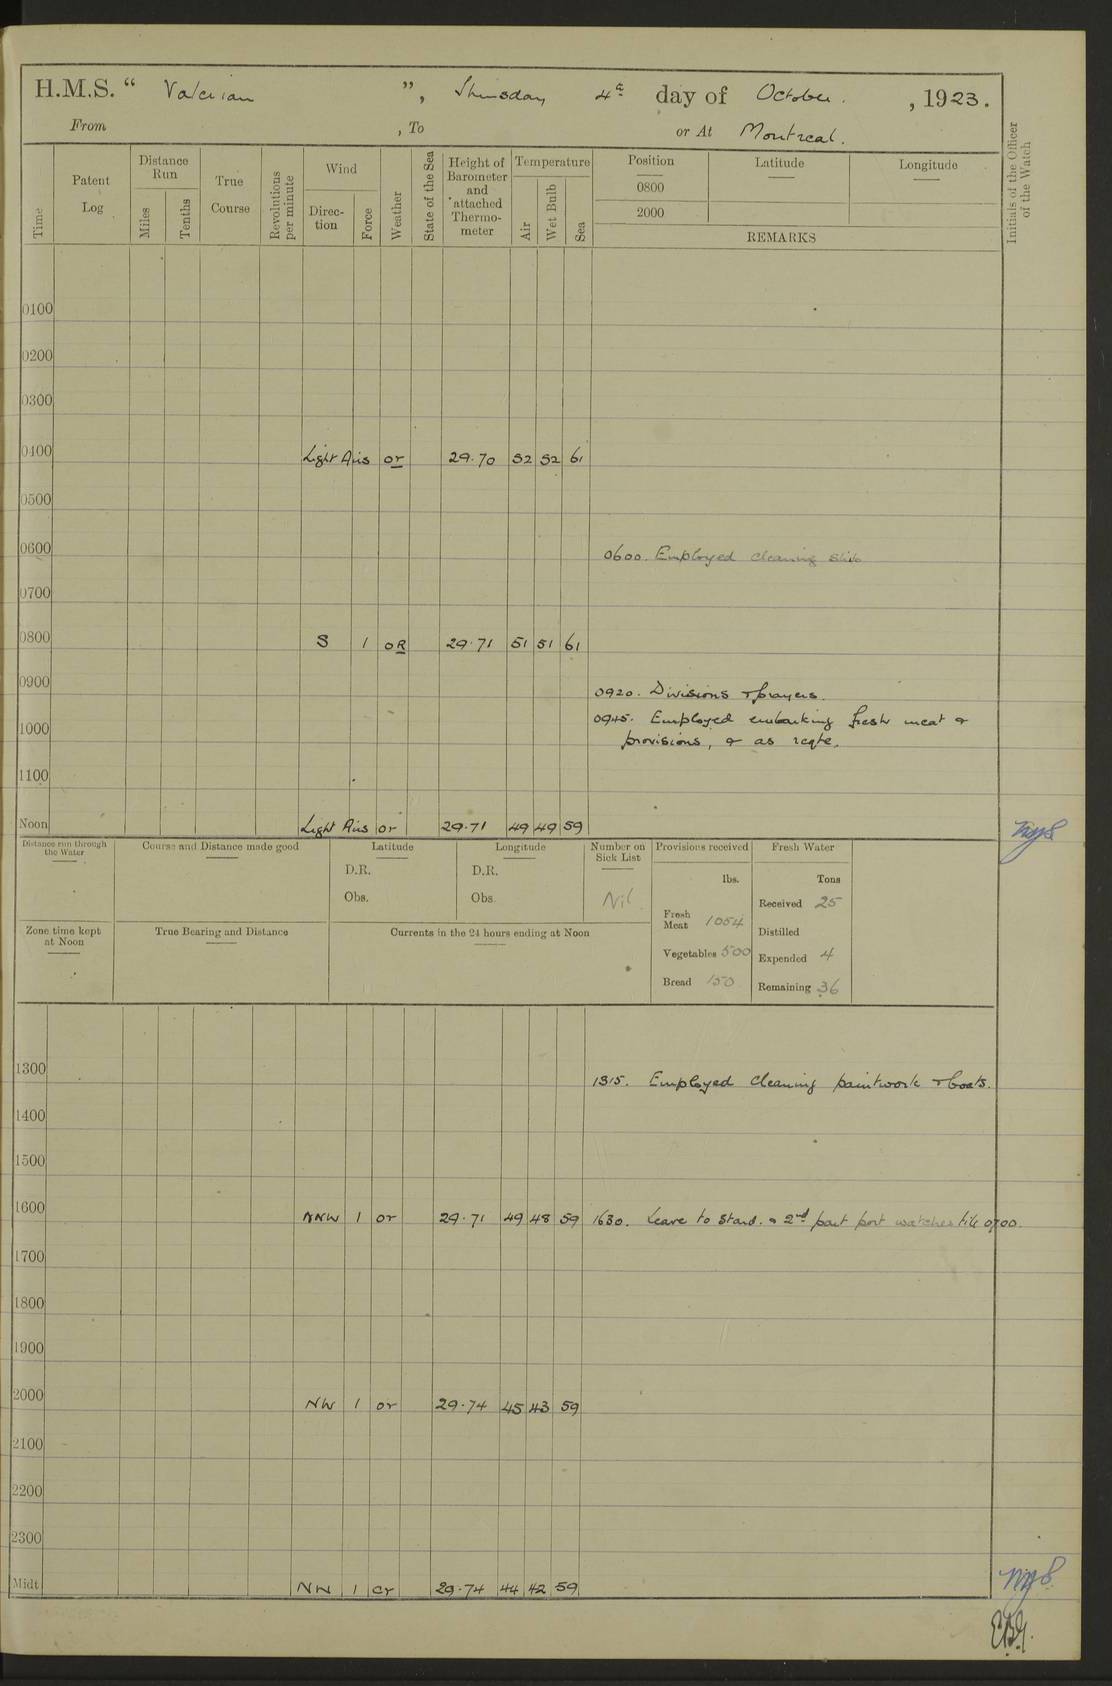 H.M.S. “ Valerian ”, Thursday 4th day of October. , 1923.
From , To or At Montreal.
Time
Patent Log
Distance Run
Miles
Tenths
True Course
Revolutions per minute
Wind
Direc-tion
Force
Weather
State of the Sea
Height of Barometer and attached Thermo-meter
Temperature
Air
Wet Bulb
Sea
Position
0800
2000
Latitude
Longitude
REMARKS
Initials of the Officer of the Watch
0100
0200
0300
0400 Light Airs or 29.70 52 52 61
0500
0600 0600. Employed cleaning ship
0700
0800 S 1 oR 29.71 51 51 61
0900 0920. Divisions & prayers.
0945. Employed embarking fresh meat &
1000 provisions, & as reqte.
1100
Noon Light Airs or 29.71 49 49 59
Distance run through the Water
Course and Distance made good
Latitude
D.R.
Obs.
Longitude
D.R.
Obs.
Number on Sick List
Nil
Provisions received
lbs.
Fresh Meat 1054
Vegetables 500
Bread 150
Fresh Water
Tons
Received 25
Distilled
Expended 4
Remaining 36
Zone time kept at Noon
True Bearing and Distance
Currents in the 24 hours ending at Noon
1300 1315. Employed cleaning paintwork & boats.
1400
1500
1600 NNW 1 or 29.71 49 48 59 1630. Leave to Stard. & 2nd part port watches till 0700.
1700
1800
1900
2000 NW 1 or 29.74 45 43 59
2100
2200
2300
Midt NW 1 cr 29.74 44 42 59